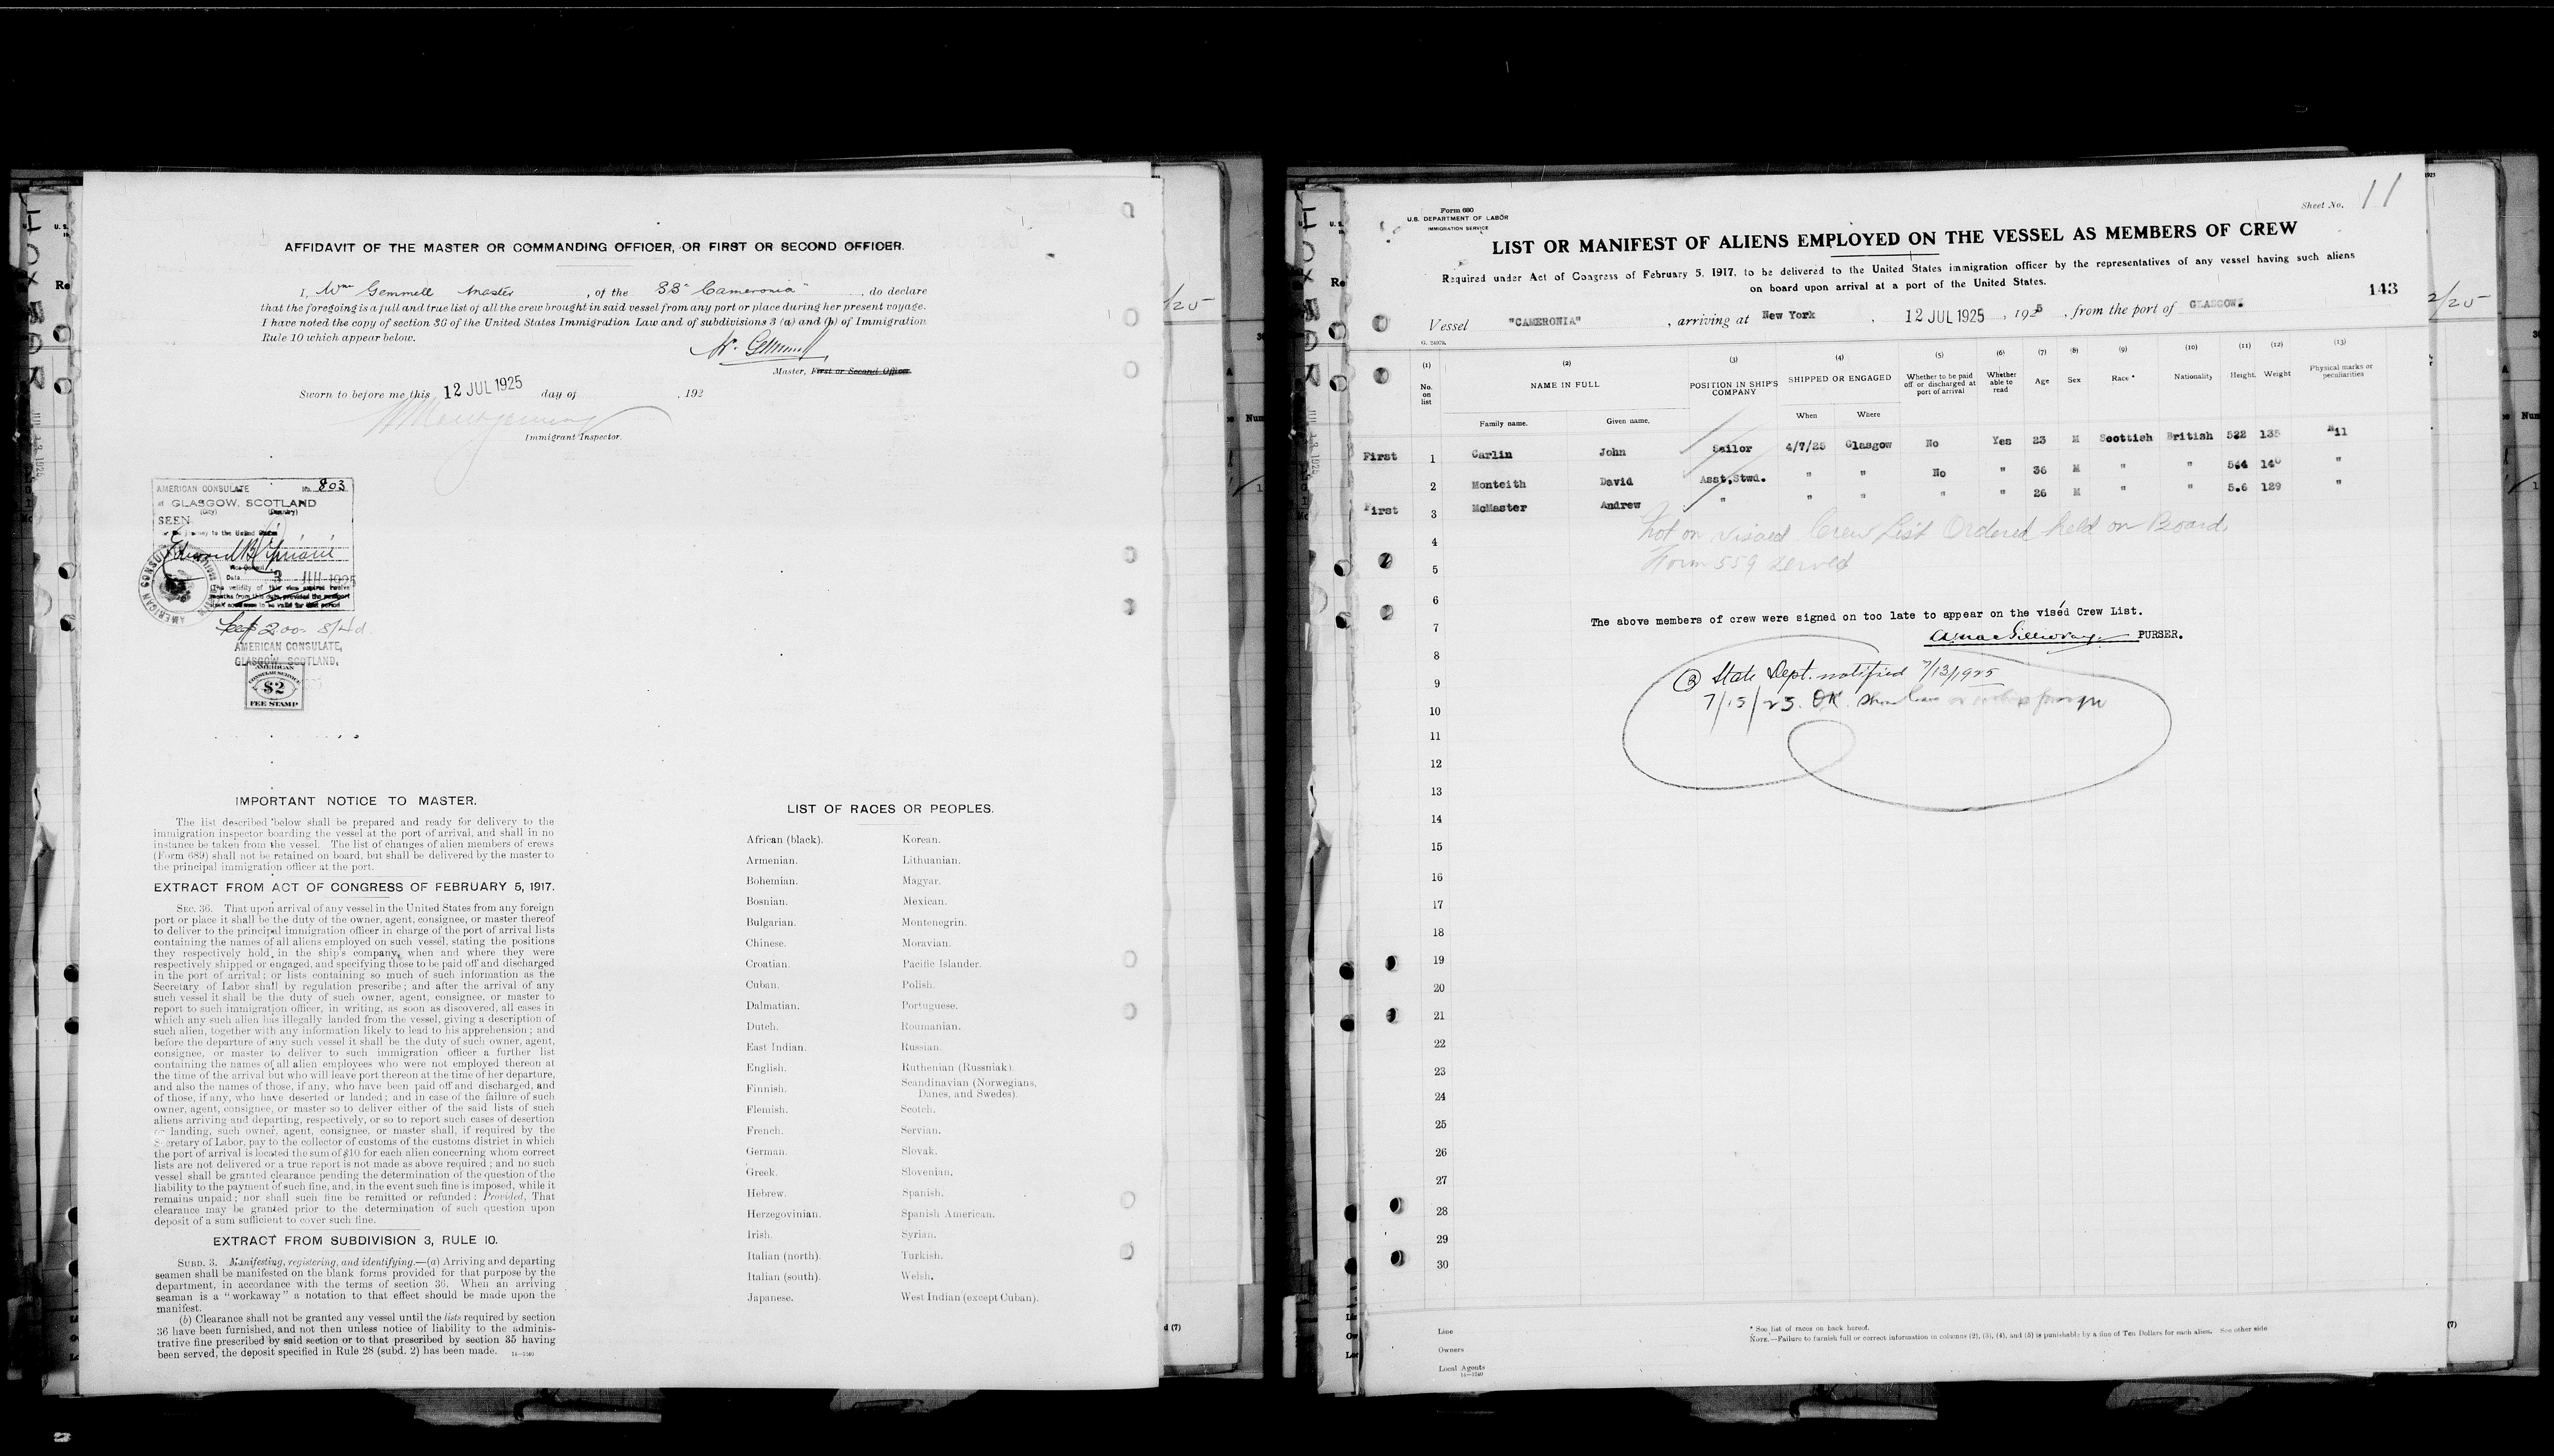 AFFIDAVIT OF THE MASTER OR COMMANDING OFFICER, OR FIRST OR SECOND OFFICER.
I, Wm Gemmell Master , of the SS "Cameronia" , do declare
that the foregoing is a full and true list of all the crew brought in said vessel from any port or place during her present voyage.
I have noted the copy of section 36 of the United States Immigration Law and of subdivisions 3 (a) and (b) of Immigration
Rule 10 which appear below.
W. Gemmell
Master, First or Second Officer.
Sworn to before me this 12 JUL 1925 day of , 192
Immigrant Inspector.
AMERICAN CONSULATE No. 803
at GLASGOW, SCOTLAND
(City) (Country)
SEEN
Vice Consul
Date 3 JUL 1925
AMERICAN CONSULATE,
GLASGOW, SCOTLAND.
AMERICAN
CONSULAR SERVICE
$2
FEE STAMP
IMPORTANT NOTICE TO MASTER.
The list described below shall be prepared and ready for delivery to the
immigration inspector boarding the vessel at the port of arrival, and shall in no
instance be taken from the vessel. The list of changes of alien members of crews
(Form 689) shall not be retained on board, but shall be delivered by the master to
the principal immigration officer at the port.
EXTRACT FROM ACT OF CONGRESS OF FEBRUARY 5, 1917.
SEC. 36. That upon arrival of any vessel in the United States from any foreign
port or place it shall be the duty of the owner, agent, consignee, or master thereof
to deliver to the principal immigration officer in charge of the port of arrival lists
containing the names of all aliens employed on such vessel, stating the positions
they respectively hold in the ship's company, when and where they were
respectively shipped or engaged, and specifying those to be paid off and discharged
in the port of arrival; or lists containing so much of such information as the
Secretary of Labor shall by regulation prescribe; and after the arrival of any
such vessel it shall be the duty of such owner, agent, consignee, or master to
report to such immigration officer, in writing, as soon as discovered, all cases in
which any such alien has illegally landed from the vessel, giving a description of
such alien, together with any information likely to lead to his apprehension; and
before the departure of any such vessel it shall be the duty of such owner, agent,
consignee, or master to deliver to such immigration officer a further list
containing the names of all alien employees who were not employed thereon at
the time of the arrival but who will leave port thereon at the time of her departure,
and also the names of those, if any, who have been paid off and discharged, and
of those, if any, who have deserted or landed; and in case of the failure of such
owner, agent, consignee, or master so to deliver either of the said lists of such
aliens arriving and departing, respectively, or so to report such cases of desertion
or landing, such owner, agent, consignee, or master shall, if required by the
Secretary of Labor, pay to the collector of customs of the customs district in which
the port of arrival is located the sum of $10 for each alien concerning whom correct
lists are not delivered or a true report is not made as above required; and no such
vessel shall be granted clearance pending the determination of the question of the
liability to the payment of such fine, and, in the event such fine is imposed, while it
remains unpaid; nor shall such fine be remitted or refunded: Provided, That
clearance may be granted prior to the determination of such question upon
deposit of a sum sufficient to cover such fine.
EXTRACT FROM SUBDIVISION 3, RULE 10.
SUBD. 3. Manifesting, registering, and identifying.—(a) Arriving and departing
seamen shall be manifested on the blank forms provided for that purpose by the
department, in accordance with the terms of section 36. When an arriving
seaman is a "workaway" a notation to that effect should be made upon the
manifest.
(b) Clearance shall not be granted any vessel until the lists required by section
36 have been furnished, and not then unless notice of liability to the adminis-
trative fine prescribed by said section or to that prescribed by section 35 having
been served, the deposit specified in Rule 28 (subd. 2) has been made. 14—1240
LIST OF RACES OR PEOPLES.
African (black). Korean.
Armenian. Lithuanian.
Bohemian. Magyar.
Bosnian. Mexican.
Bulgarian. Montenegrin.
Chinese. Moravian.
Croatian. Pacific Islander.
Cuban. Polish.
Dalmatian. Portuguese.
Dutch. Roumanian.
East Indian. Russian.
English. Ruthenian (Russniak).
Finnish. Scandinavian (Norwegians,
Danes, and Swedes).
Flemish. Scotch.
French. Servian.
German. Slovak.
Greek. Slovenian.
Hebrew. Spanish.
Herzegovinian. Spanish American.
Irish. Syrian.
Italian (north). Turkish.
Italian (south). Welsh.
Japanese. West Indian (except Cuban).
Form 680
U.S. DEPARTMENT OF LABOR
IMMIGRATION SERVICE
Sheet No. 11
LIST OR MANIFEST OF ALIENS EMPLOYED ON THE VESSEL AS MEMBERS OF CREW
Required under Act of Congress of February 5, 1917, to be delivered to the United States immigration officer by the representatives of any vessel having such aliens
on board upon arrival at a port of the United States.
143
Vessel "CAMERONIA" , arriving at New York , 12 JUL 1925 , 1925 , from the port of GLASGOW.
(1) (2) (3) (4) (5) (6) (7) (8) (9) (10) (11) (12) (13)
No. on list NAME IN FULL POSITION IN SHIP'S COMPANY SHIPPED OR ENGAGED Whether to be paid off or discharged at port of arrival Whether able to read Age Sex Race* Nationality Height. Weight Physical marks or peculiarities
Family name. Given name. When Where
First 1 Carlin John Sailor 4/7/25 Glasgow No Yes 23 M Scottish British 5@2 135 Nil
2 Monteith David Asst.Stwd. " " No " 36 M " " 5@4 140 "
First 3 McMaster Andrew " " " " " 26 M " " 5.6 129 "
4 Not on visaed Crew List Ordered held on Board
5 Form 559 served
6
The above members of crew were signed on too late to appear on the viséd Crew List.
7
PURSER.
8
(3) State Dept. notified 7/13/1925
9
7/15/25. OK
10
11
12
13
14
15
16
17
18
19
20
21
22
23
24
25
26
27
28
29
30
Line
Owners
Local Agents
14—1240
* See list of races on back hereof.
NOTE.—Failure to furnish full or correct information in columns (2), (3), (4), and (5) is punishable by a fine of Ten Dollars for each alien. See other side